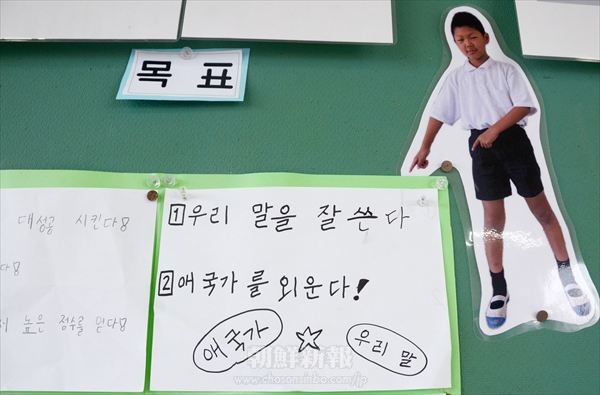 목 표
대성공 시킨다!
다!
높은 점수를 맏다!
1 우리 말을 잘 쓴다
2 애국가를 외운다!
애국가 ☆ 우리 말
朝鮮新報
www.chosonsinbo.com/jp